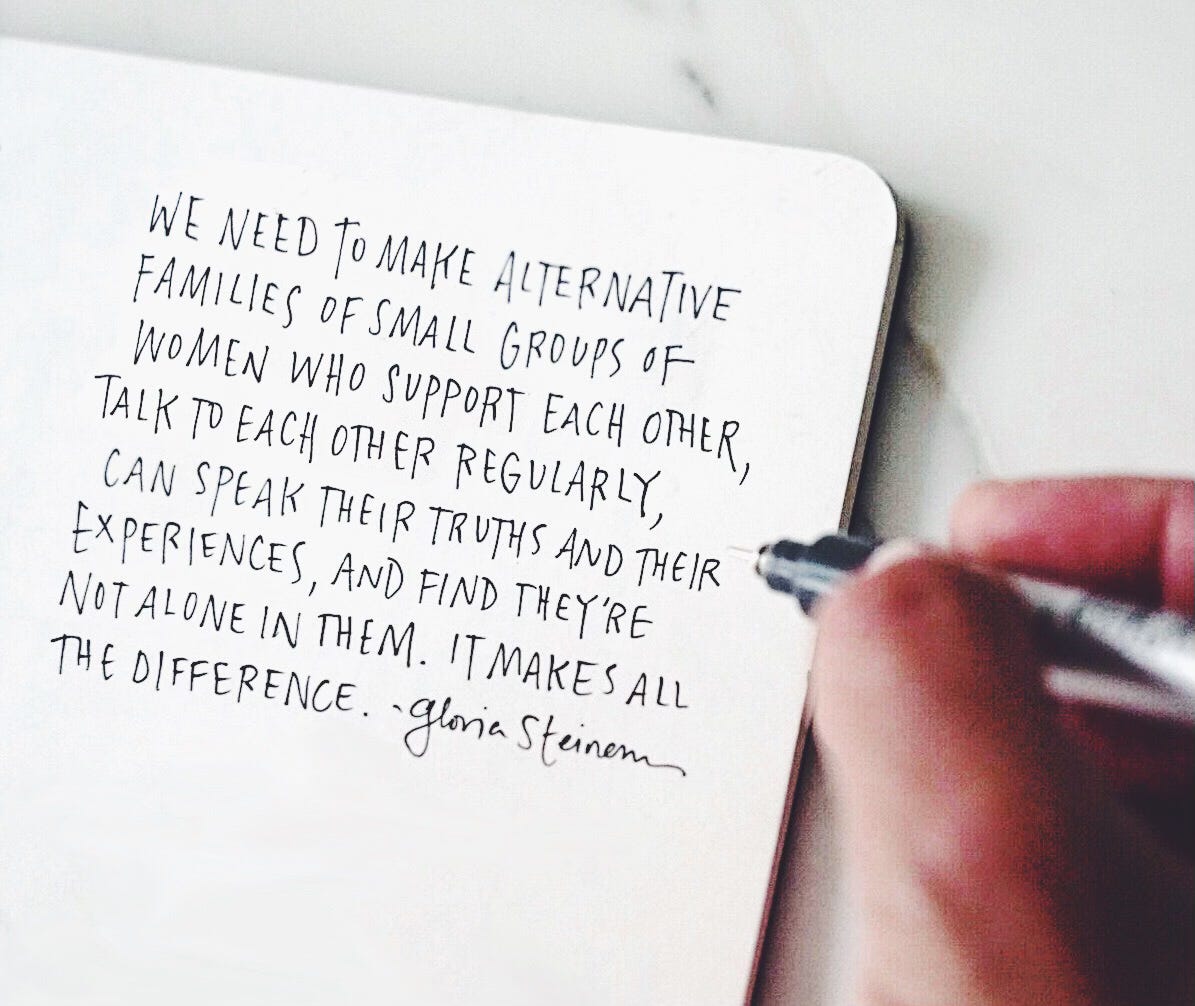 WE NEED TO MAKE ALTERNATIVE
FAMILIES OF SMALL GROUPS OF
WOMEN WHO SUPPORT EACH OTHER,
TALK TO EACH OTHER REGULARLY,
CAN SPEAK THEIR TRUTHS AND THEIR
EXPERIENCES, AND FIND THEY'RE
NOT ALONE IN THEM. IT MAKES ALL
THE DIFFERENCE. - Gloria Steinem